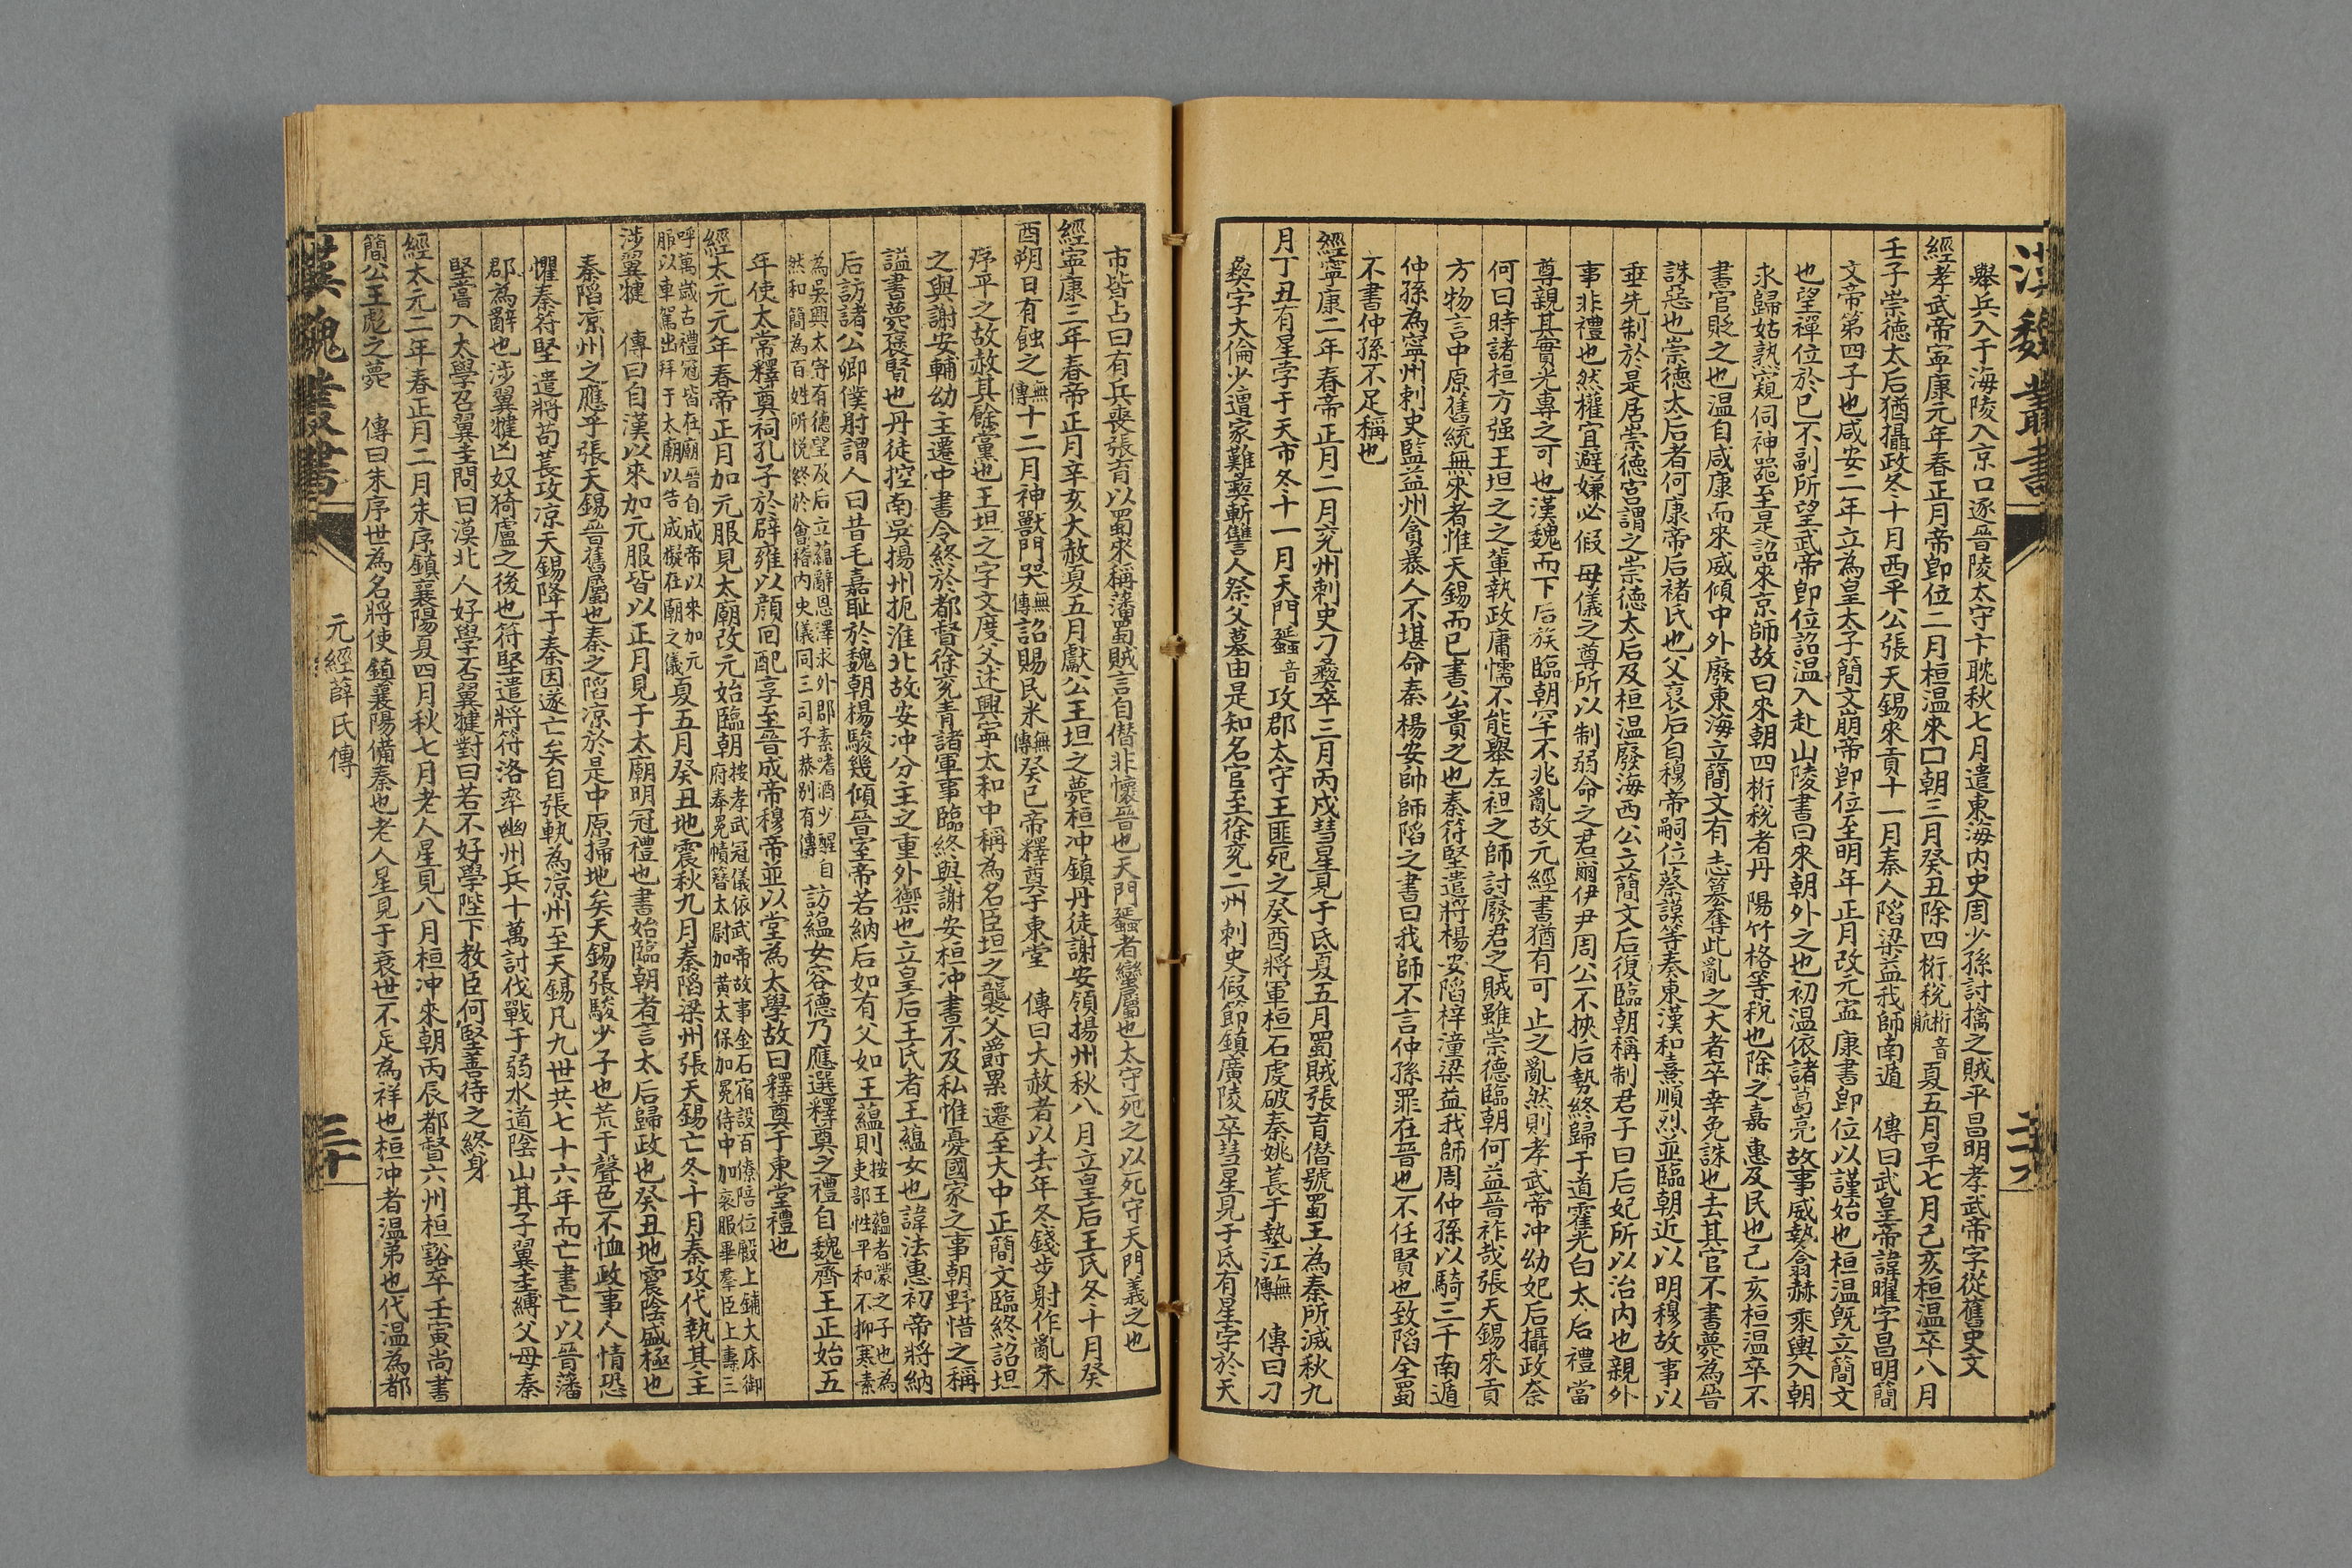 漢魏叢書
二十九
舉兵入于海陵入京口逐晉陵太守卞耽秋七月遣東海內史周少孫討擒之賊平昌明孝武帝字從舊史文
經孝武帝寧康元年春正月帝卽位二月桓溫來朝三月癸丑除四桁稅桁音航夏五月旱七月己亥桓溫卒八月
壬子崇德太后猶攝政冬十月西平公張天錫來貢十一月秦人陷梁益我師南遁　傳曰武皇帝諱曜字昌明簡
文帝第四子也咸安二年立為皇太子簡文崩帝卽位至明年正月改元寧康書卽位以謹始也桓溫旣立簡文
也望禪位於已不副所望武帝卽位詔溫入赴山陵書曰來朝外之也初溫依諸葛亮故事威埶翕赫乘輿入朝
求歸姑孰窺伺神器至是詔來京師故曰來朝四桁稅者丹陽竹格等稅也除之嘉惠及民也己亥桓溫卒不
書官貶之也溫自咸康而來威傾中外廢東海立簡文有志篡奪此亂之大者卒幸免誅也去其官不書薨為晉
誅惡也崇德太后者何康帝后褚氏也父裒后自穆帝嗣位蔡謨等奏東漢和熹順烈並臨朝近以明穆故事以
垂先制於是居崇德宮謂之崇德太后及桓溫廢海西公立簡文后復臨朝稱制君子曰后妃所以治內也親外
事非禮也然權宜避嫌必假母儀之尊所以制弱命之君爾伊尹周公不挾后勢終歸于道霍光白太后禮當
尊親其實光專之可也漢魏而下后族臨朝罕不兆亂故元經書猶有可止之亂然則孝武帝冲幼妃后攝政奈
何曰時諸桓方强王坦之之輩執政庸懦不能舉左袒之師討廢君之賊雖崇德臨朝何益晉祚哉張天錫來貢
方物言中原舊統無來者惟天錫而已書公貴之也秦符堅遣將楊安陷梓潼梁益我師周仲孫以騎三千南遁
仲孫為寧州刺史監益州貪暴人不堪命秦楊安帥師陷之書曰我師不言仲孫罪在晉也不任賢也致陷全蜀
不書仲孫不足稱也
經寧康二年春帝正月二月兖州刺史刁彝卒三月丙戍彗星見于氐夏五月蜀賊張育僭號蜀王為秦所滅秋九
月丁丑有星孛于天市冬十一月天門蜑音攻郡太守王匪死之癸酉將軍桓石虔破秦姚萇于墊江無傳　傳曰刁
彝字大倫少遭家難彝斬讐人祭父墓由是知名官至徐兖二州刺史假節鎮廣陵卒彗星見于氐有星孛於天
市皆占曰有兵喪張育以蜀來稱藩蜀賊言自僭非懷晉也天門蜑者蠻屬也太守死之以死守天門義之也
經寧康三年春帝正月辛亥大赦夏五月獻公王坦之薨桓冲鎮丹徒謝安領揚州秋八月立皇后王氏冬十月癸
酉朔日有蝕之無傳十二月神獸門哭無傳詔賜民米無傳癸巳帝釋奠于東堂　傳曰大赦者以去年冬錢步射作亂朱
序平之故赦其餘黨也王坦之字文度父述興寧太和中稱為名臣坦之襲父爵累遷至大中正簡文臨終詔坦
之與謝安輔幼主遷中書令終於都督徐兖青諸軍事臨終與謝安桓冲書不及私惟憂國家之事朝野惜之稱
謚書薨襃賢也丹徒控南吳揚州扼淮北故安冲分主之重外禦也立皇后王氏者王蘊女也諱法惠初帝將納
后訪諸公卿僕射謂人曰昔毛嘉耻於魏朝楊駿幾傾晉室帝若納后如有父如王蘊則按王蘊者濛之子也為吏部性平和不抑寒素
為吳興太守有德望及后立蘊辭恩澤求外郡素嗜酒少醒自然和簡為百姓所悅終於會稽內史儀同三司子恭別有傳訪蘊女容德乃應選釋奠之禮自魏齊王正始五
年使太常釋奠祠孔子於辟雍以顏回配享至晉成帝穆帝並以堂為太學故曰釋奠于東堂禮也
經太元元年春帝正月加元服見太廟改元始臨朝按孝武冠儀依武帝故事金石宿設百僚陪位殿上鋪大床御府奉冕幘簪太尉加黃太保加冕侍中加衮服畢羣臣上壽三
呼萬歲古禮冠皆在廟晉自成帝以來加元服以車駕出拜于太廟以告成擬在廟之儀夏五月癸丑地震秋九月秦陷梁州張天錫亡冬十月秦攻代執其主
涉翼犍　傳曰自漢以來加元服皆以正月見于太廟明冠禮也書始臨朝者言太后歸政也癸丑地震陰盛極也
秦陷凉州之應乎張天錫晉舊屬也秦之陷凉於是中原掃地矣天錫張駿少子也荒于聲色不恤政事人情恐
懼秦符堅遣將苟萇攻凉天錫降于秦因遂亡矣自張軌為凉州至天錫凡九世共七十六年而亡書亡以晉藩
郡為辭也涉翼犍凶奴猗盧之後也符堅遣將符洛率幽州兵十萬討伐戰于弱水道陰山其子翼圭縛父母秦
堅嘗入太學召翼圭問曰漠北人好學否翼犍對曰若不好學陛下教臣何堅善待之終身
經太元二年春正月二月朱序鎮襄陽夏四月秋七月老人星見八月桓冲來朝丙辰都督六州桓豁卒壬寅尚書
簡公王彪之薨　傳曰朱序世為名將使鎮襄陽備秦也老人星見于衰世不足為祥也桓冲者溫弟也代溫為都
漢魏叢書
元經薛氏傳
三十